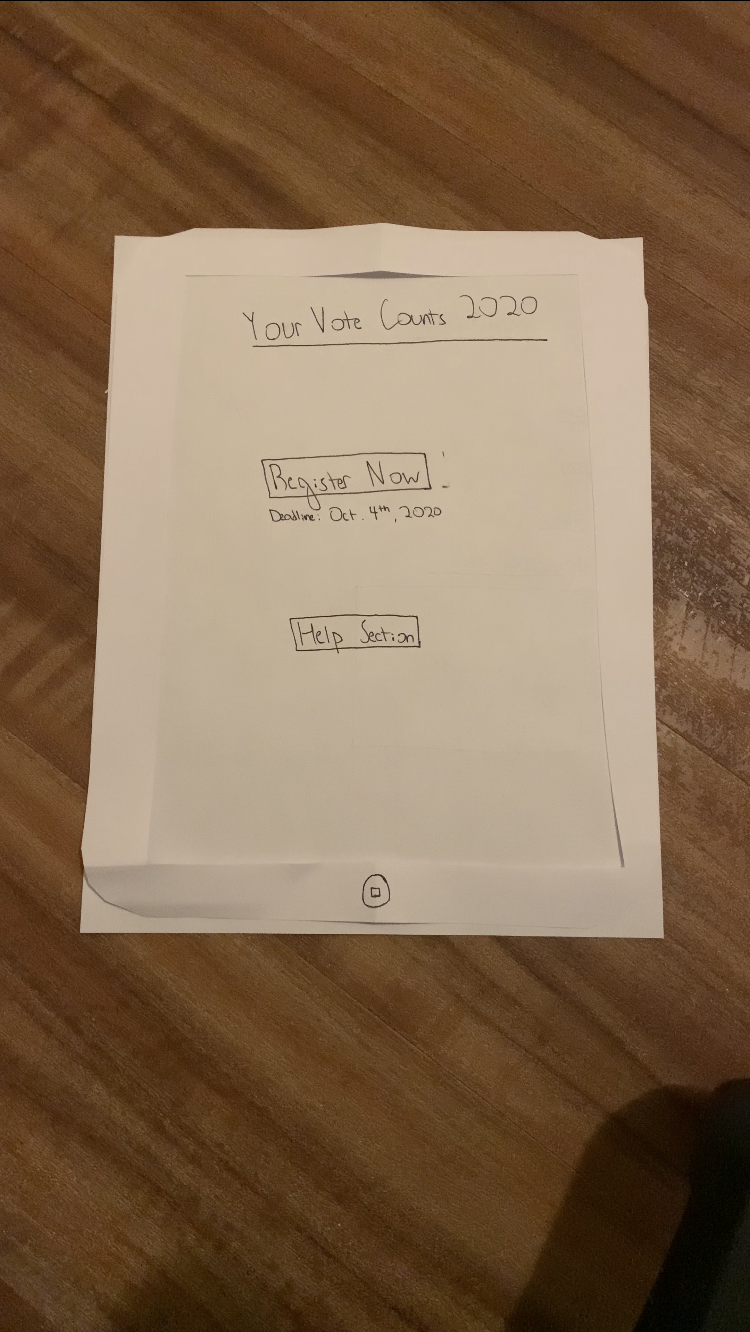 Your Vote Counts 2020
Register Now
Deadline: Oct. 4th, 2020
Help Section